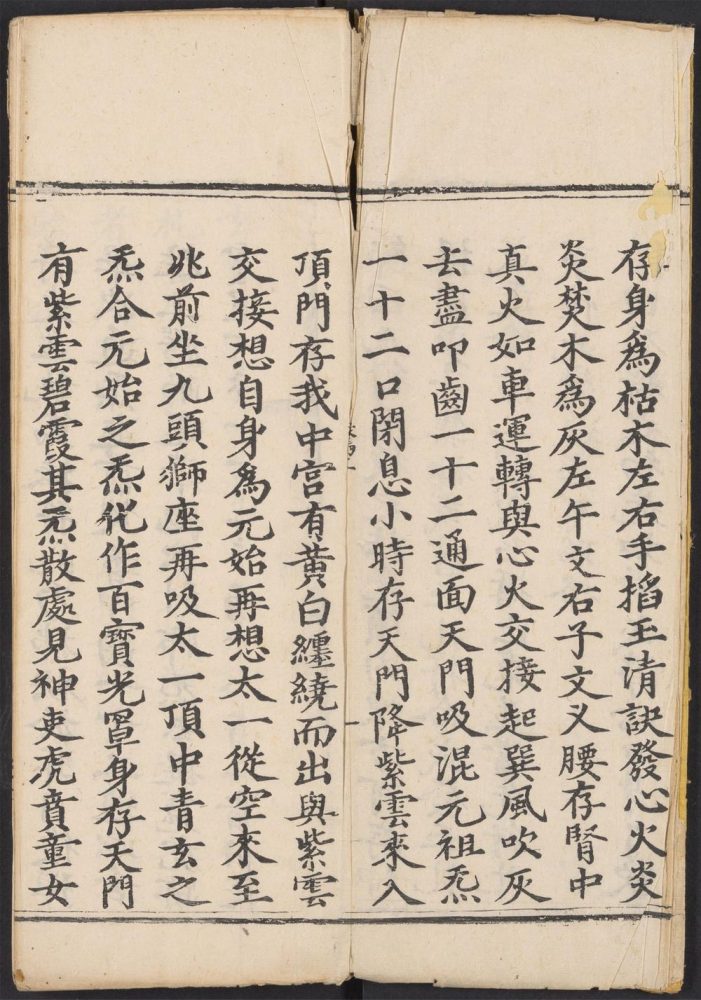 存身爲枯木左右手掐玉清訣發心火炎
炎焚木爲灰左午文右子文义腰存腎中
真火如車運轉與心火交接起巽風吹灰
去盡叩齒一十二通面天門吸混元祖炁
一十二口閉息小時存天門降紫雲來入
頂門存我中宮有黃白纏繞而出與紫雲
交接想自身爲元始再想太一從空來至
兆前坐九頭獅座再吸太一頂中青玄之
炁合元始之炁化作百寶光罩身存天門
有紫雲碧霞其炁散處見神吏虎賁童女